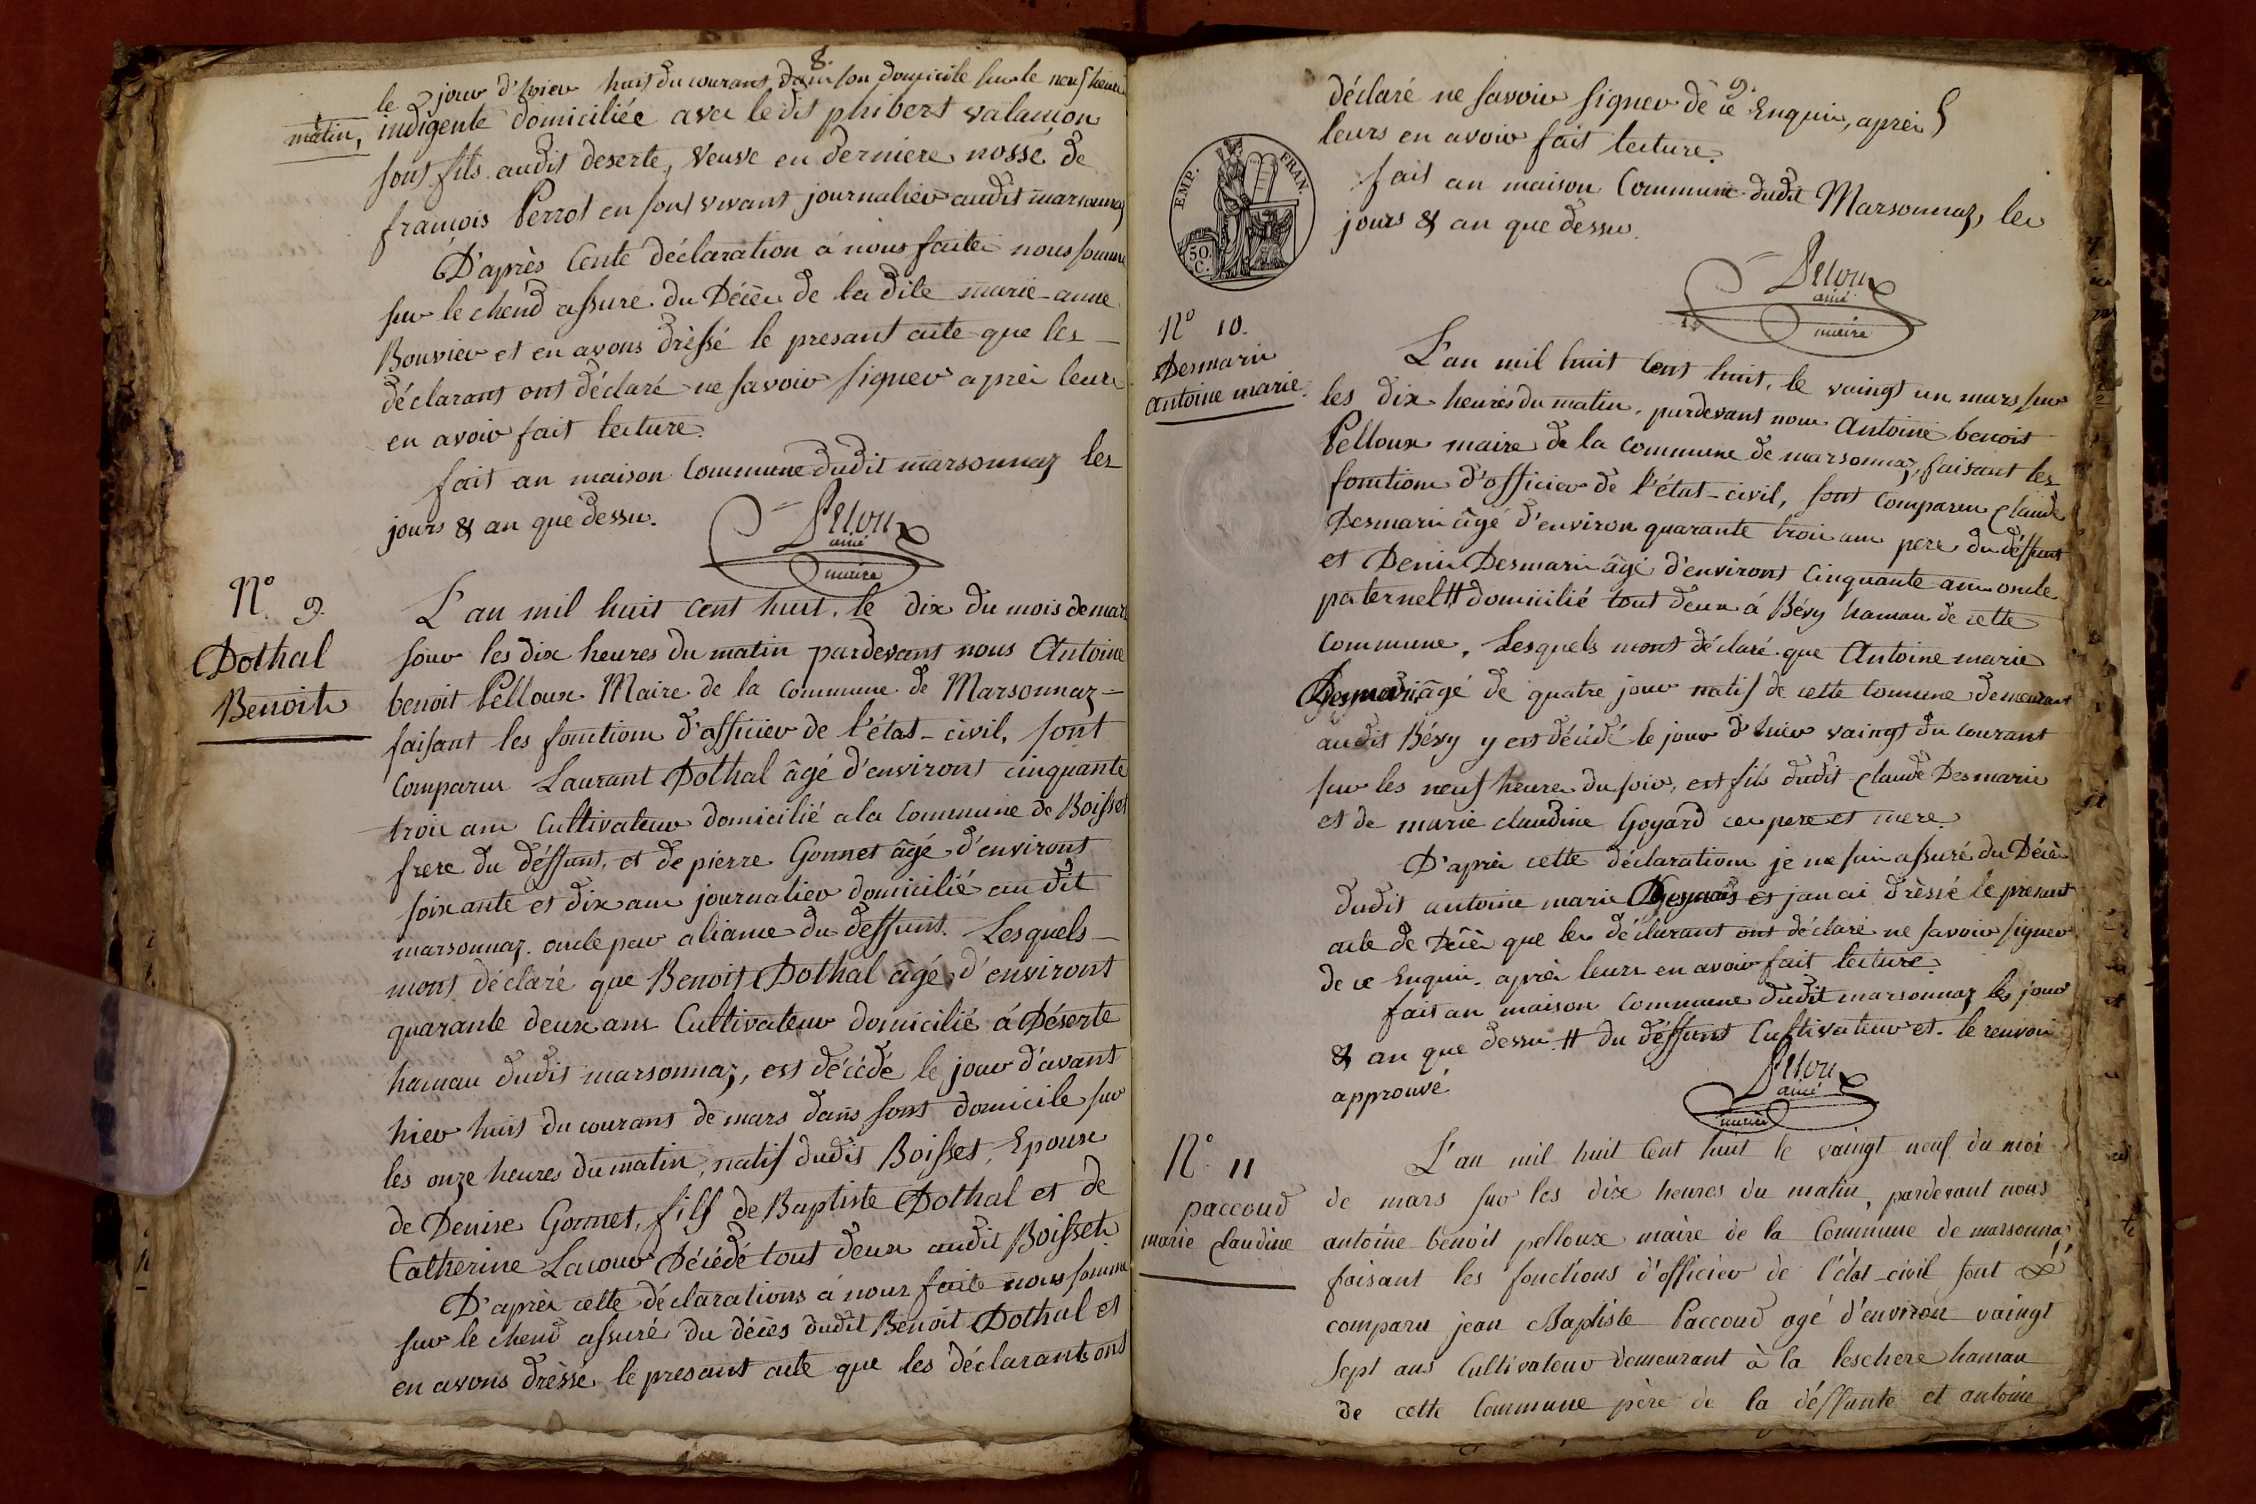 8.
le jour d'hier huit du courant dans son domicile sur le neuf heures
matin, indigente domiciliée avec ledit phibert valançon
sont fils audit deserte, Veuve en derniere nosse de
françois Perrot en sont vivant journalier audit marsonnaz
D'après cente déclaration á nous faite nous somme
sur le chend assuré du Décès de la dite marie-anne
Bouvier et en avons dressé le presant acte que les
déclarans ont déclaré ne savoir signer après leurs
en avoir fait lecture.
fait an maison Commune dudit marsonnaz les
jours & an que dessu.
Pelloux
ainé
maire
N° 9.
Dothal
Benoit
L'an mil huit cent huit, le dix du mois de mars
sour les dix heures du matin pardevant nous Antoine
benoit Pelloux Maire de la Commune de Marsonnaz
faisant les fonctions d'officier de l'état-civil, sont
Comparus Laurant Dothal âgé d'environt cinquante
trois ans Cultivateur domicilié a la Commune de Boisset
frere du déffunt, et de pierre Gonnet âgé d'environt
soixante et dix ans journalier domicilié audit
marsonnaz. oncle par aliance du deffunt. Lesquels
mont déclaré que Benoit Dothal âgé d'environt
quarante deux ans Cultivateur domicilié á Déserte
hamau dudit marsonnaz, est décédé le jour d'avant
hier huit du courant de mars dans sont domicile sur
les onze heures du matin, natif dudit Boisset, Epoux
de Denise Gonnet, fils de Baptiste Dothal et de
Catherine Lacour Décédé tout deux audit Boisset
D'après cette déclarations á nour faite nous somme
sur le chend assuré du décès dudit Benoit Dothal et
en avons dressé le presant acte que les déclarants ont
9.
déclaré ne savoir signer de ce Enquis, après
leurs en avoir fait lecture.
fait an maison Commune dudit Marsonnaz, les
jours & an que dessu.
EMP. FRAN.
50. C.
Pelloux
ainé
maire
N° 10.
Desmaris
Antoine marie.
L'an mil huit Cent huit, le vaingt un mars sur
les dix heures du matin, purdevant nous Antoine benoit
Pelloux maire de la Commune de marsonnaz, faisant les
fonctions d'officier de l'état-civil, sont Comparus Claude
Desmaris âgé d'environ quarante trois ans pere du déffunt
et Denis Desmaris âgé d'environt Cinquante ans oncle
paternel # domicilié tout deux á Bévy hamau de cette
Commune, Lesquels mont déclaré que Antoine marie
Desmaris âgé de quatre jour natif de cette Comune demeurant
audit Bévy y est décédé le jour d'hier vaingt du courant
sur les neuf heures du soir, est fils dudit Claude Desmaris
et de marie claudine Goyard ces pere et mere.
D'après cette déclarations je me suis assuré du Décès
dudit antoine marie Desmaris et jan ai dressé le presant
acte de Décès que les déclarant ont déclaré ne savoir signer
de ce Enquis. après leurs en avoir fait lecture.
fait an maison Commune dudit marsonnaz les jour
& an que dessu. # du deffunt Cultivateur et. le renvoi
approuvé
Pelloux
ainé
maire
N° 11
paccoud
marie Claudine
L'an mil huit Cent huit le vaingt neuf du moi
de mars sur les dix heures du matin, pardevant nous
antoine benoit pelloux maire de la Commune de marsonnaz
faisant les fonctions d'officier de l'état-civil sont
comparu jean Baptiste Paccoud agé d'environ vaingt
Sept ans Cultivateur demeurant à la leschere hamau
de cette Commune père de la déffunte et antoine